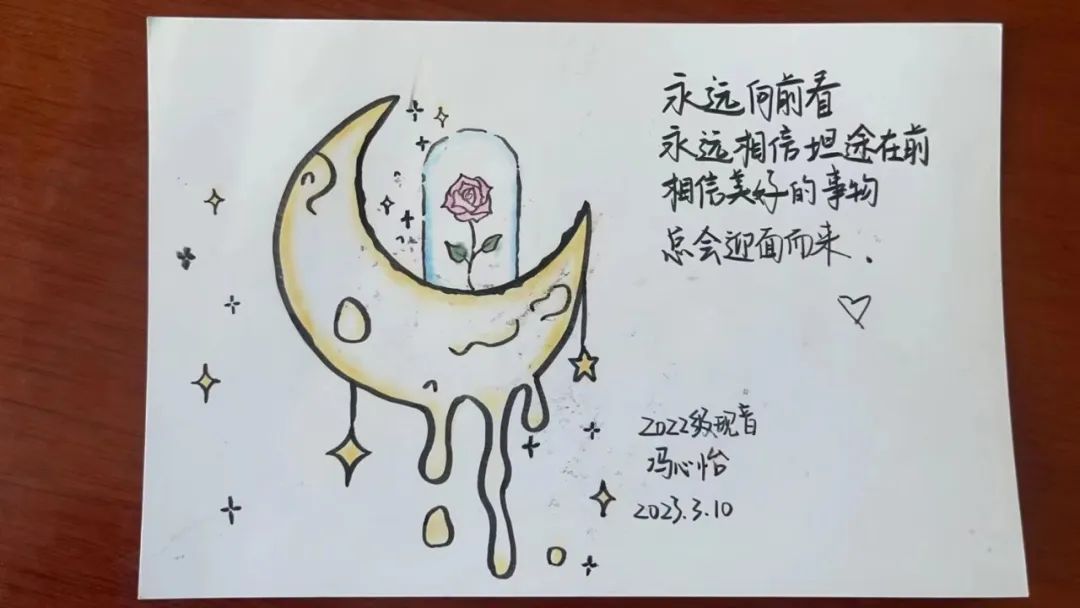 永远向前看
永远相信坦途在前
相信美好的事物
总会迎面而来.
2022级现音
冯心怡
2023.3.10